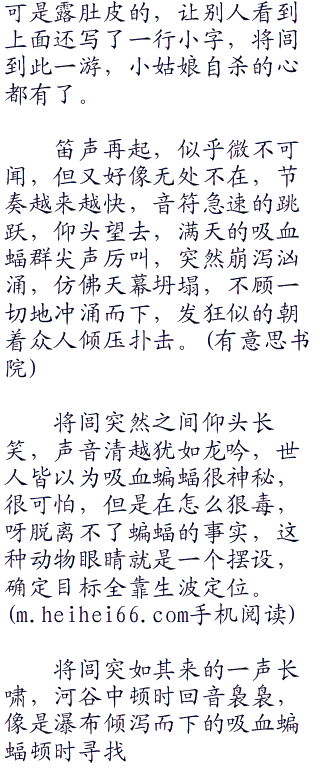 可是露肚皮的，让别人看到
上面还写了一行小字，将闾
到此一游，小姑娘自杀的心
都有了。
笛声再起，似乎微不可
闻，但又好像无处不在，节
奏越来越快，音符急速的跳
跃，仰头望去，满天的吸血
蝠群尖声厉叫，突然崩泻汹
涌，仿佛天幕坍塌，不顾一
切地冲涌而下，发狂似的朝
着众人倾压扑击。(有意思书
院)
将闾突然之间仰头长
笑，声音清越犹如龙吟，世
人皆以为吸血蝙蝠很神秘，
很可怕，但是在怎么狠毒，
呀脱离不了蝙蝠的事实，这
种动物眼睛就是一个摆设，
确定目标全靠生波定位。
(m.heihei66.com手机阅读)
将闾突如其来的一声长
啸，河谷中顿时回音袅袅，
像是瀑布倾泻而下的吸血蝙
蝠顿时寻找